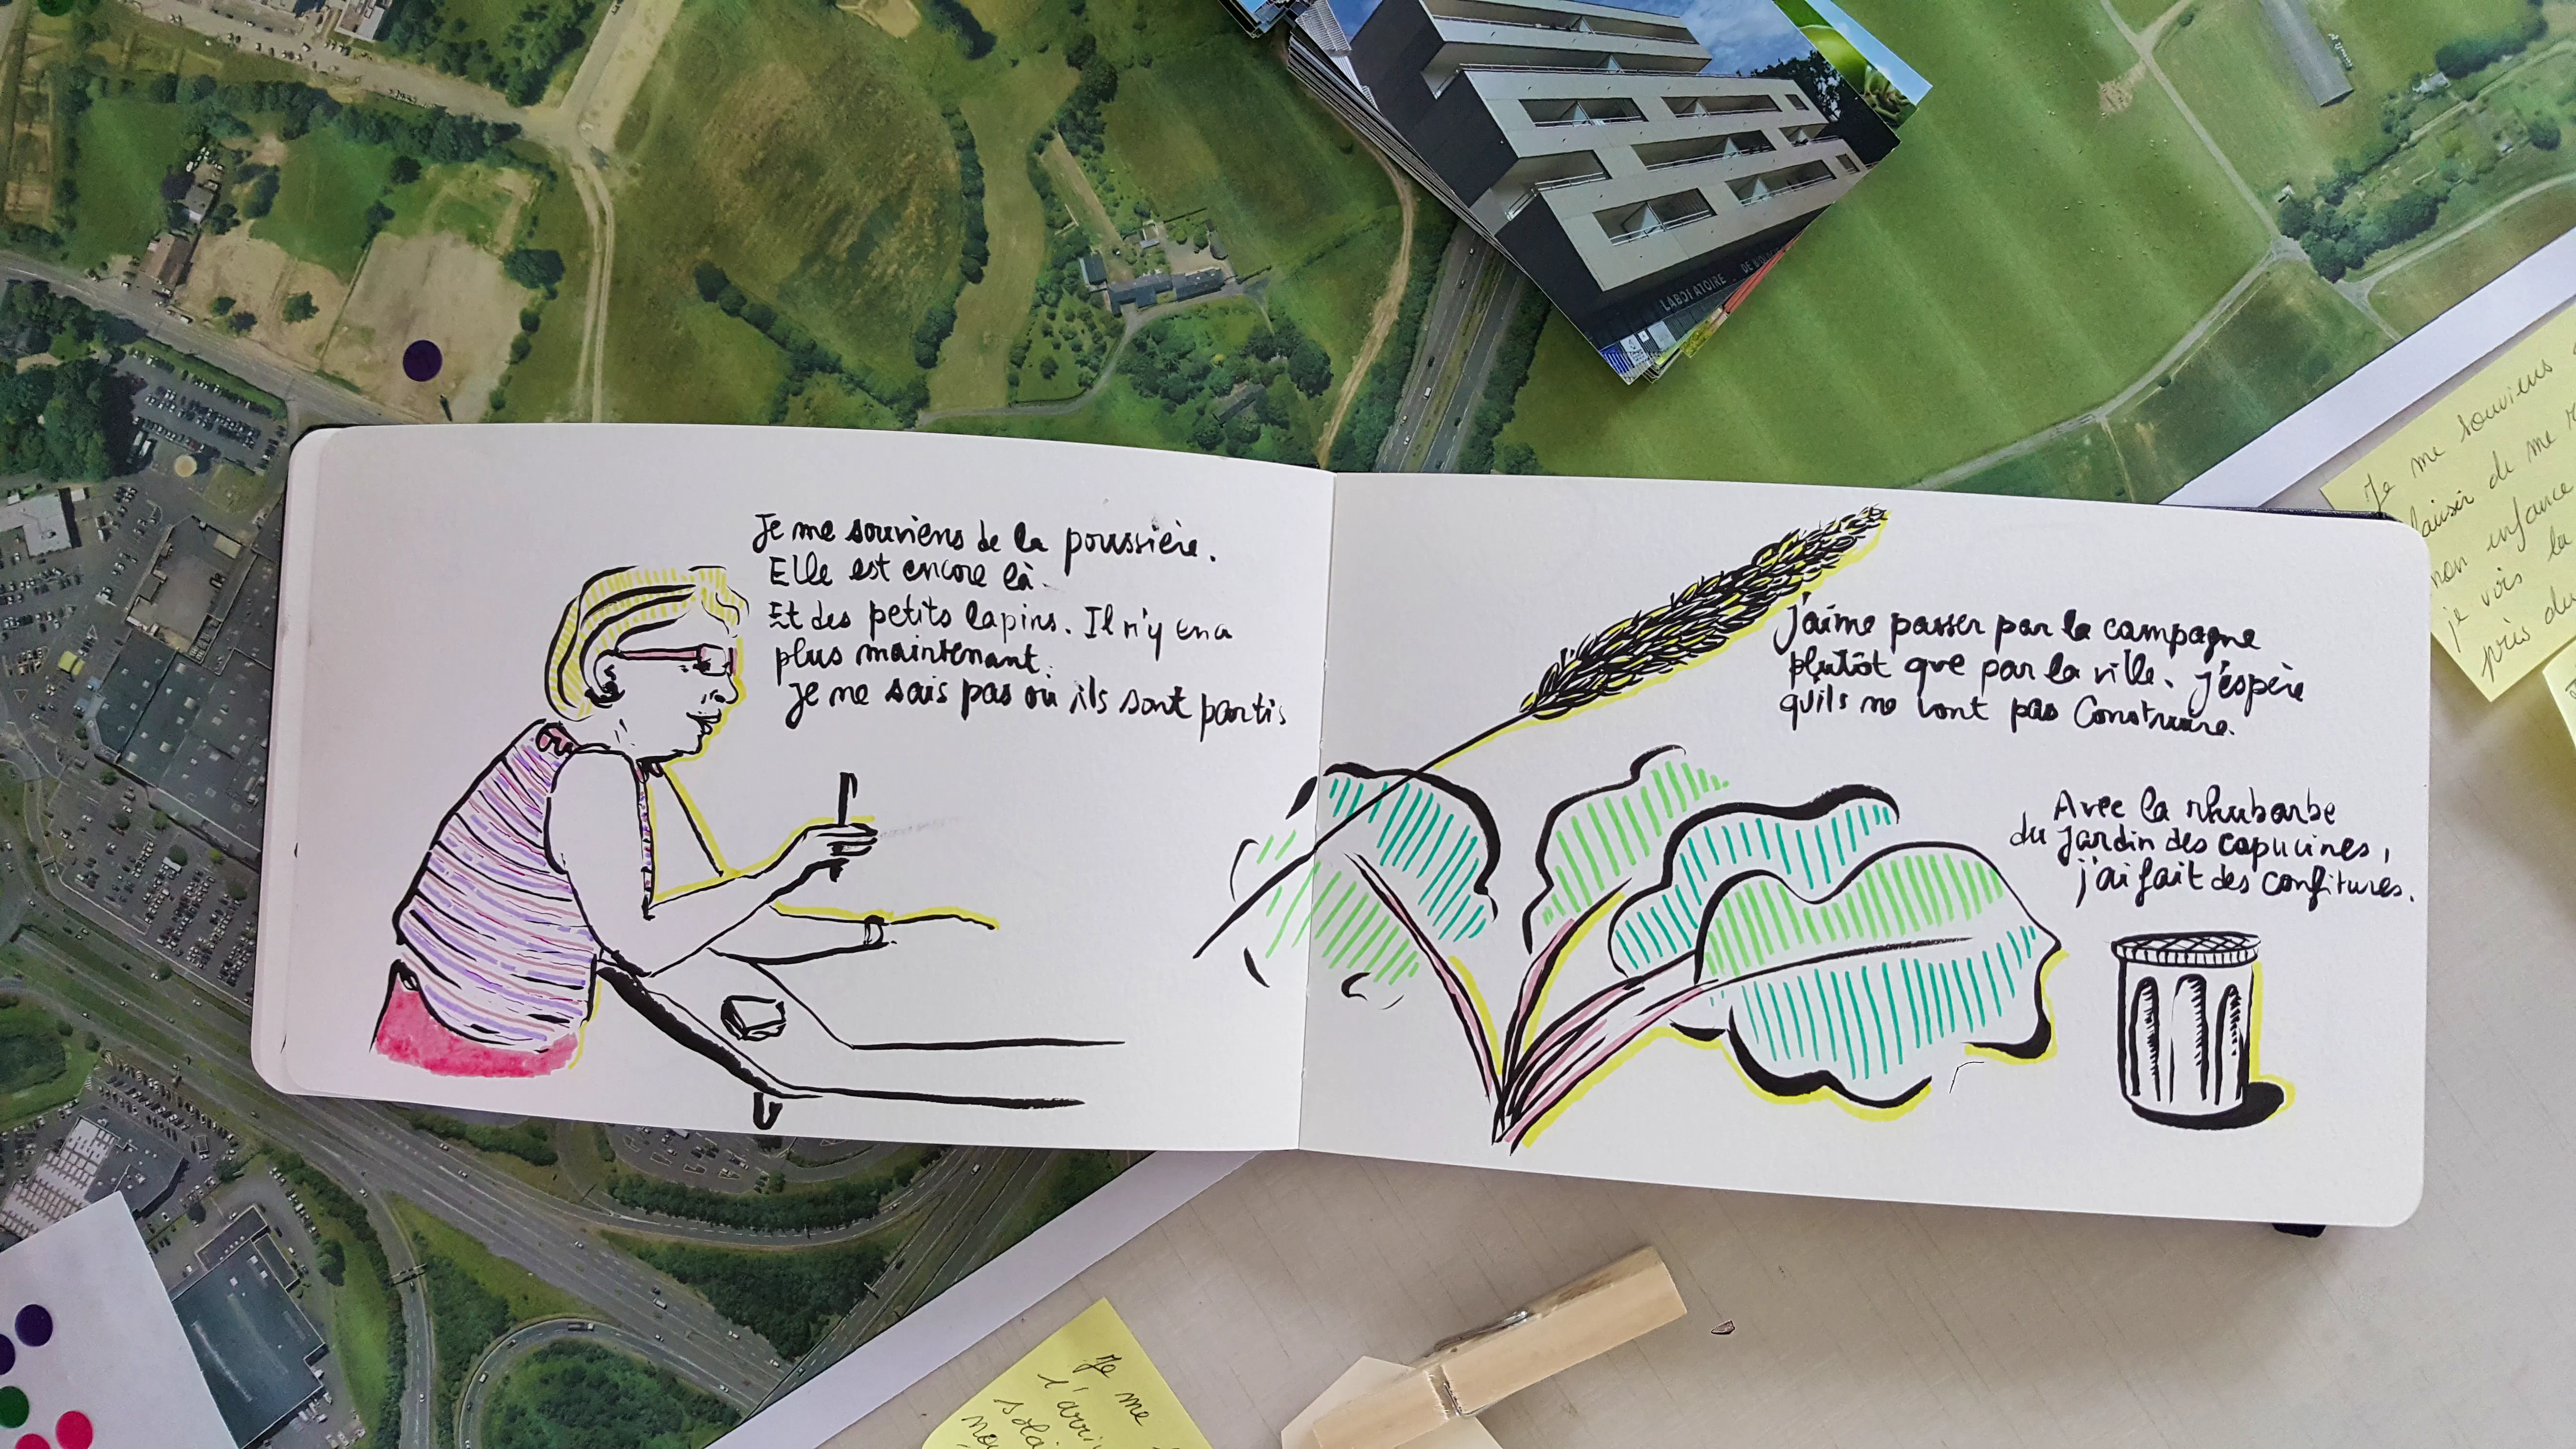 LABORATOIRE DE
Je me souviens
plaisir de me
mon enfance
je vois la
près du
Je me souviens de la poussière.
Elle est encore là.
Et des petits lapins. Il n'y en a
plus maintenant.
Je ne sais pas où ils sont partis
J'aime passer par la campagne
plutôt que par la ville. J'espère
qu'ils ne vont pas construire.
Avec la rhubarbe
du jardin des capucines,
j'ai fait des confitures.
Je me
l'arri